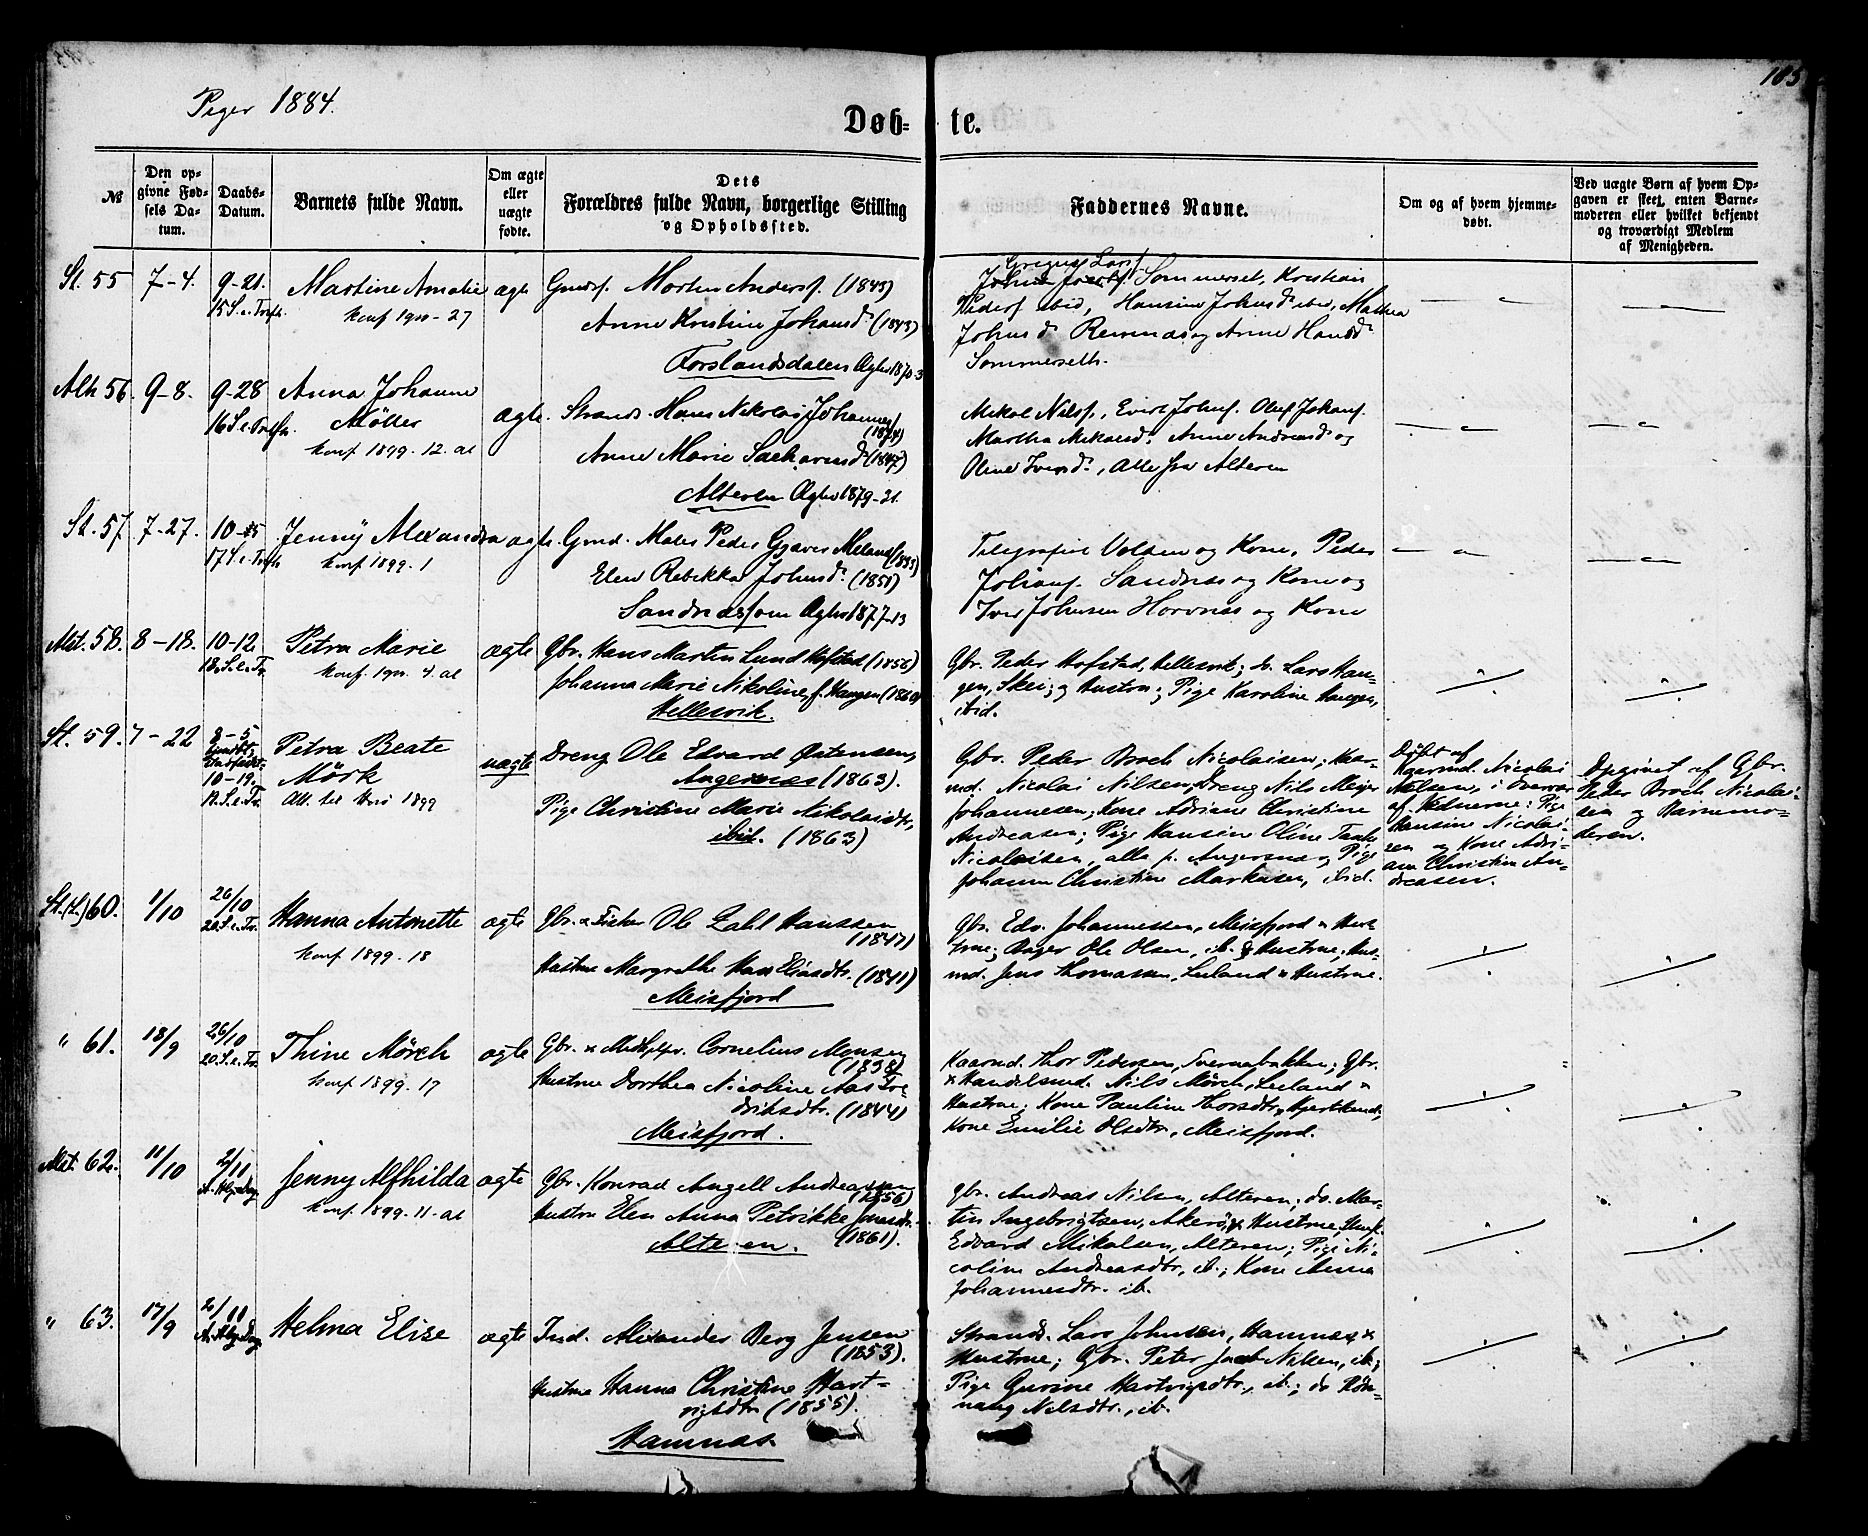 185
Piger 1884.
Døb-te.
№
Den opgivne Fødsels Datum.
Daabs-Datum.
Barnets fulde Navn.
Om ægte eller uægte fødte.
Dets Forældres fulde Navn, borgerlige Stilling og Opholdssted.
Faddernes Navne.
Om og af hvem hjemmedøbt.
Ved uægte Børn af hvem Opgaven er skeet, enten Barnemoderen eller hvilket bekjendt og troværdigt Medlem af Menigheden.
St. 55 7-4. 9-21. 15 S. e. Trefh.
Martine Amalie
Konf 1900-27
ægte
Morten Anders. (1845)
Anne Kristine Johansd. (1843)
Forslandsdalen
Sommerset, Kristian
Sommerseth.
Alt 56. 9-8. 9-28 16 S. e. Trefh.
Anna Johanne
Møller
Konf 1899. 12. al
ægte.
Strands. Hans Nikolai Johannes
Anne Marie Sachariasd. (1847)
Alteren Ægtev 1879-21.
Martha Mikalsd. Anne Andreasd. og
Oline Iversd., Alle fra Alteren
St. 57. 7-27. 10-5 17 S. e. Trefh
Jenny Alexandra
Konf. 1899. 1
ægte.
Elen Rebekka Johnsd. (1851)
Ægtev 1877-13
Telegrafist Volden og Kone, Peder
Johans. Sandnes og Kone og
Iver Johnsen Horvnes og Kone
Mst. 58. 8-18. 10-12 18. S. e. Tr.
Petra Marie
Konf. 1900. 4. al
ægte
Gbr. Hans Martin Lund Hofstad (1856)
Johanna Marie Nikoline, f. Haugen (1860)
Hellesvik.
Gbr. Peder Hofstad, Hellesvik; do. Lars Haugen, Skei; og Hustru; Pige Karoline Haugen, ibid.
St. 59. 7-22 8-5
10-19.
Petra Beate
Mørk
1899
uægte
Dreng Ole Edvard Østensen,
Angersnes (1863).
Pige Christine Marie Nikolaidtr,
ibid. (1863)
Gbr. Peder Broch Nicolaisen; Kaar-
md. Nicolai Nilsen; Dreng Nils Meyer
Johannesen; Kone Adriane Christine
Andreasen; Pige Hansine Oline
Nicolaisen, alle p. Angersnes og Pige
Johanna Christine Markusen, ibid.
Døbt af
Kaarmd. Nicolai
Nilsen, i Overvær
af Vidnerne: Pige
Hansine Nicolai-
sen og Kone Adri-
ane Christine An-
dreasen.
Opgivet af Gbr.
Peder Broch Nicolai-
sen og Barnemo-
deren.
St. (L.) 60. 1/10 26/10 20. S. e. Tr.
Hanna Antonette
Konf 1899. 18
ægte
Gbr. & Fisker Ole Zahl Hanssen
(1847)
Hustru Margrethe Hass Eliasdtr. (1841)
Meisfjord
Gbr. Edv. Johannessen, Meisfjord & Hus-
true; Ole Olsen, ib. & Hustrue; Hus-
md. Jens Thomassen, Leland & Hustrue.
" 61. 18/9 26/10 20. S. e. Tr.
Thine Mørch
Konf 1899. 17
ægte
Cornelius Monsen
(1838)
Hustrue Dorthea Nicoline Aas Fre-
driksdtr. (1844)
Meisfjord.
Kaarmd. Thor Pedersen, Tverrabakken; Gbr.
& Handelsmd. Nils Mørch, Leland &
Hustrue; Kone Pauline Thorsdtr,
Kone Emilie Olsdtr., Meisfjord.
Mst. 62. 11/10 2/11
Jenny Alfhilda
Konf. 1899. 11. al
ægte
Gbr. Konrad Angell Andreassen
(1856)
Hustru Elen Anna Petrikke Jonasdtr.
(1861).
Alteren.
Gbr. Andreas Nilsen, Alteren; do. Mar-
tin Ingebrigtsen, Akerø & Hustrue;
Edvard Mikalsen, Alteren; Pige Ni-
coline Andreasdtr, ib.; Kone Anna
Johannesdtr. ib.
" 63. 17/9 2/11
Helma Elise
ægte
Ind. Alexander Berg Jensen
(1853).
Hustru Hanna Christine Hart-
vigsdtr (1855).
Hamnæs.
Strands. Lars Johnsen, Hamnæs &
Hustrue; Gbr. Peter Jacob Nilsen, ib.;
Pige Gurine Hartvigsdtr., ib.; do
Nilsdtr., ib.